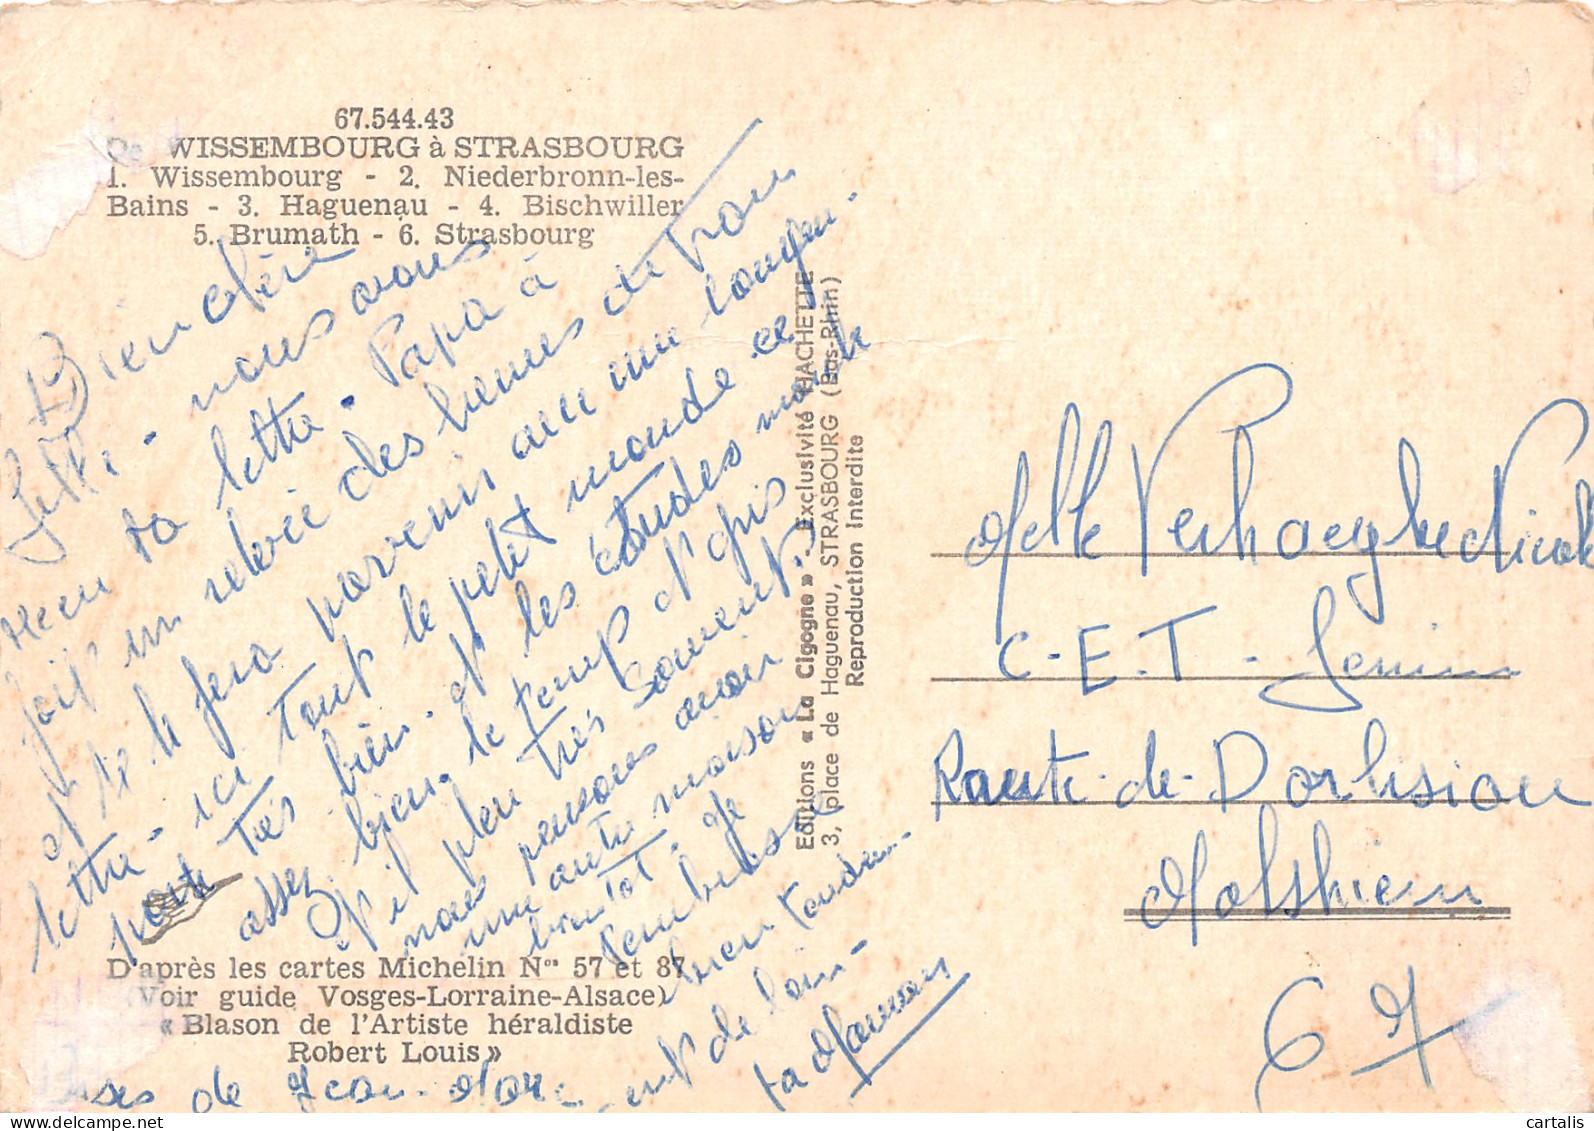 67.544.43
De WISSEMBOURG à STRASBOURG
1. Wissembourg - 2. Niederbronn-les-
Bains - 3. Haguenau - 4. Bischwiller
5. Brumath - 6. Strasbourg
Bien chère
nous avons
reçu ta lettre. Papa à
fait un relevé des heures de
et te le fera parvenir avec une longue
lettre - ici tout le petit monde se
porte très bien. et les études marche
assez bien. le temps est gris
et il pleut très souvent.
nous pensons avoir
une autre maison
bientôt. je
t'embrasse
bien tendre-
ment de loin -
ta Maman
de Jean-Marc
D'après les cartes Michelin Nos 57 et 87
(Voir guide Vosges-Lorraine-Alsace)
« Blason de l'Artiste héraldiste
Robert Louis »
Editions « La Cigogne » - Exclusivité HACHETTE
3, place de Haguenau, STRASBOURG (Bas-Rhin)
Reproduction Interdite
Melle Verhaeghe Nicole
C.E.T. -
Route-de-Dorlisheim
Molsheim
67
cartalis